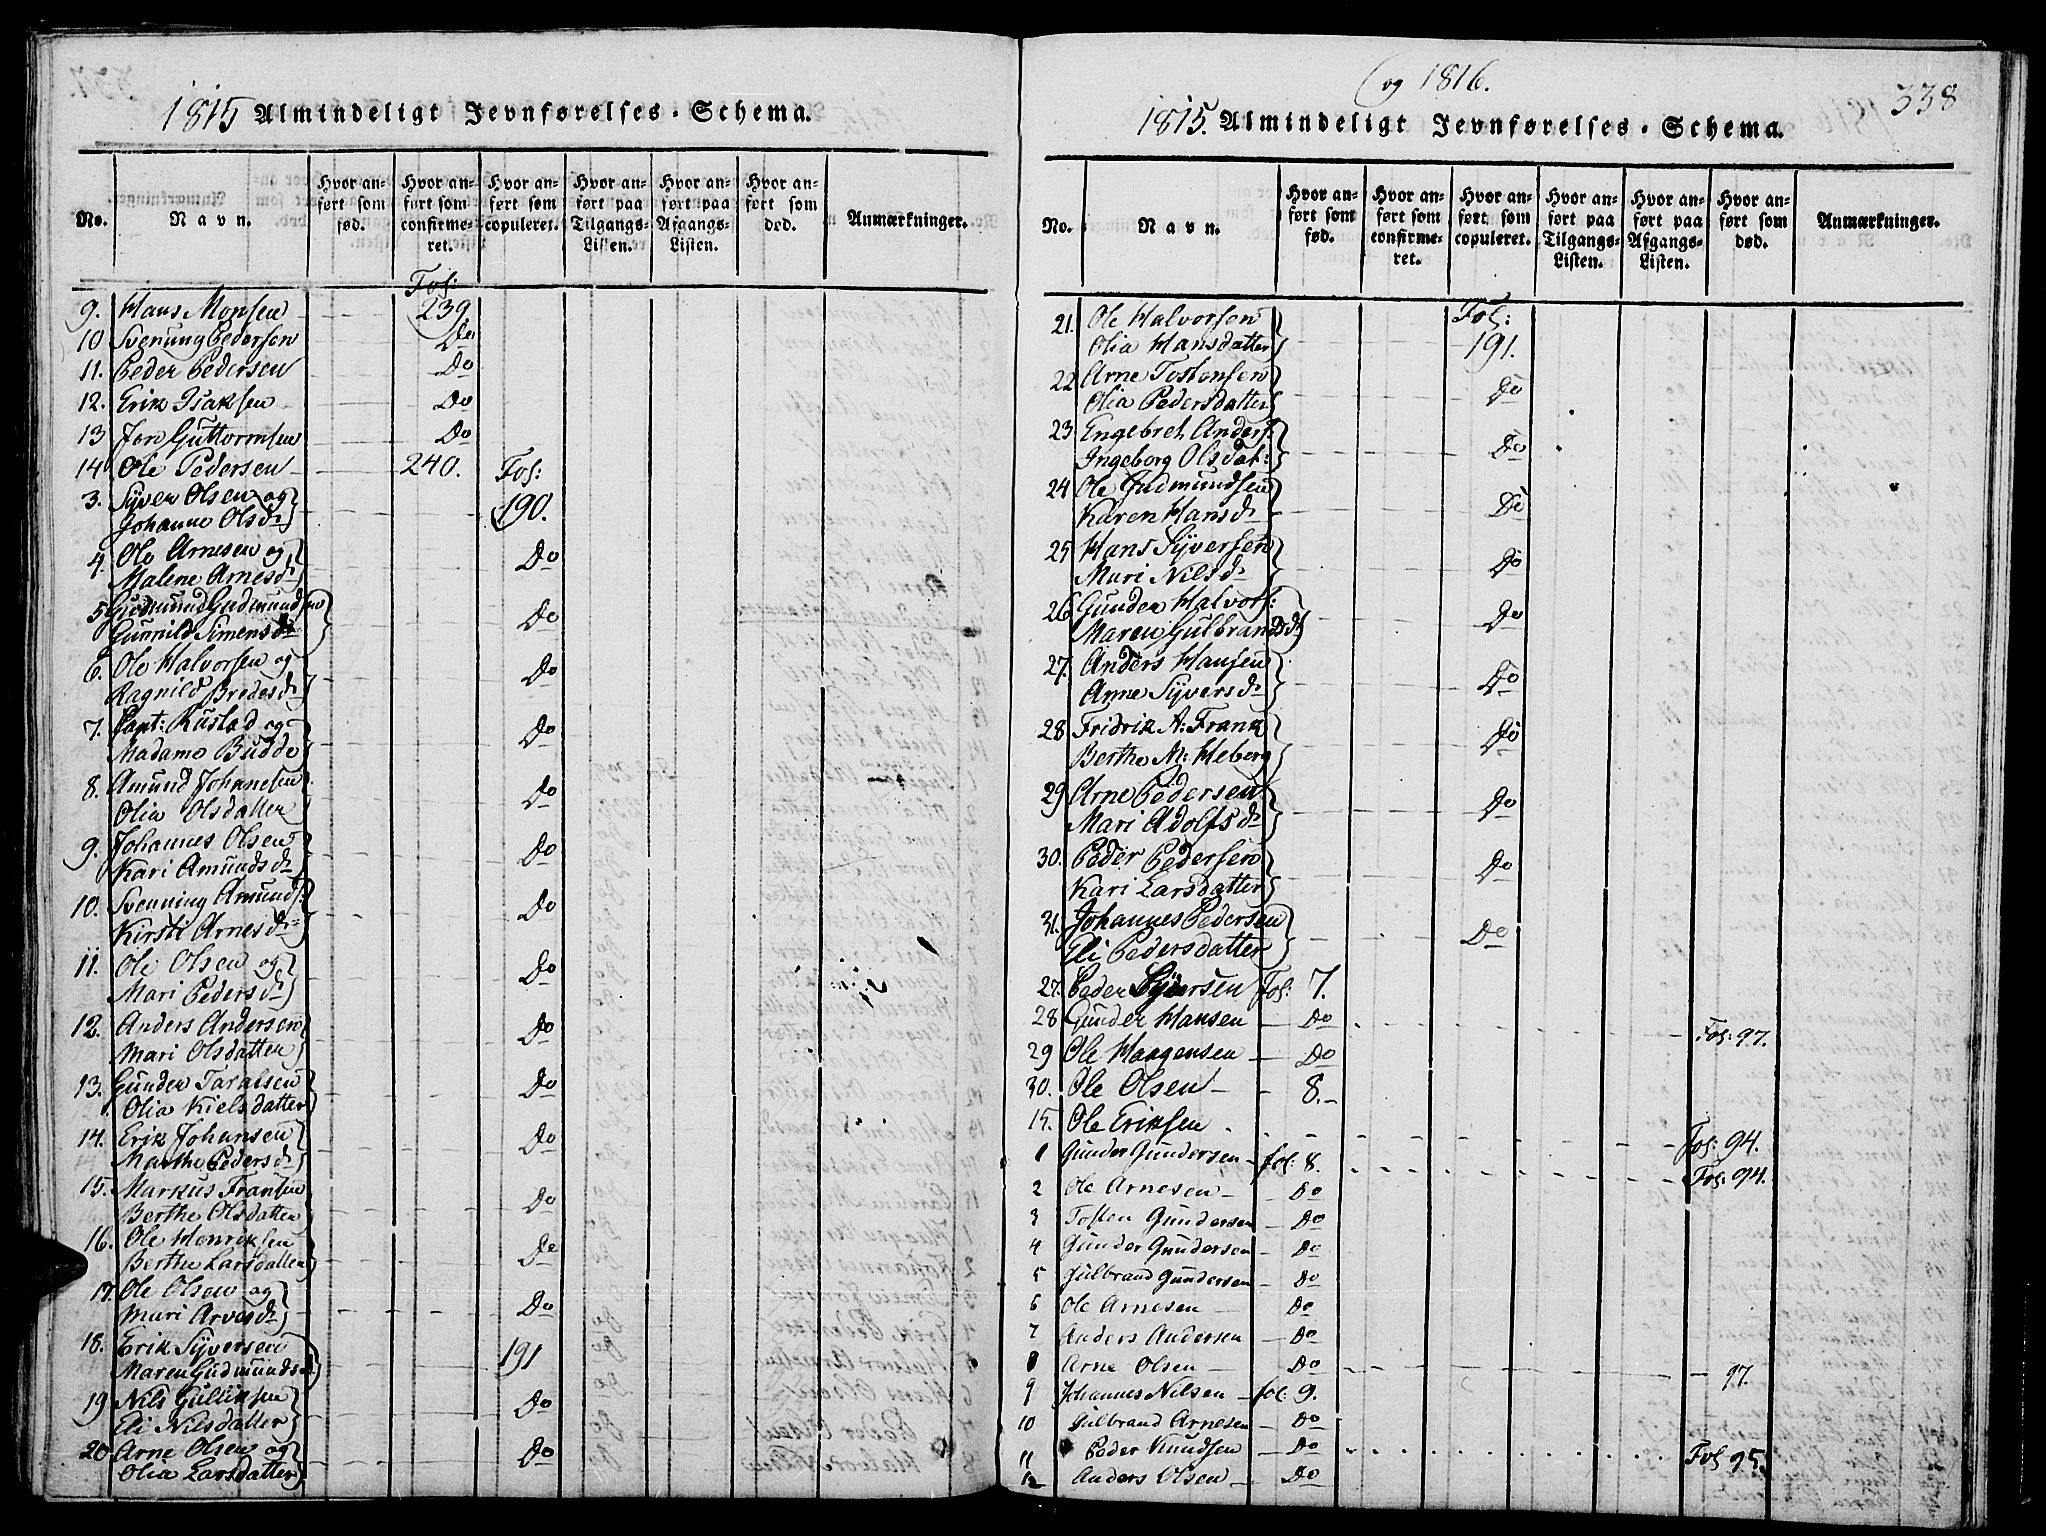 1815 Almindeligt Jevnførelses-Schema.
No. Navn. Hvor anført som fød. Hvor anført som confirmeret. Hvor anført som copuleret. Hvor anført paa Tilgangs-Listen. Hvor anført paa Afgaangs-Listen. Hvor anført som død. Anmærkninger.
Fol:
9. Hans Monsen 239
10 Svenung Pedersen Do
11. Peder Pedersen Do
12. Erik Isaksen Do
13 Jon Guttormsen Do
14 Ole Pedersen 240. Fol:
3. Syver Olsen og
Johanne Olsd 190.
4. Ole Arnesen og
Malene Arnesd Do
5 Gudmund Gudmundsen
Gunnild Simensd Do
6. Ole Halvorsen og
Ragnild Bredesd Do
7. Capt: Kustad og
Madame Budde Do
8. Amund Johanesen
Olia Olsdatter Do
9. Johannes Olsen
Kari Amundsd Do
10. Svenning Amunds:
Kirsti Arnesd Do
11. Ole Olsen og
Mari Pedersd Do
12. Anders Andersen
Mari Olsdatter Do
13. Gunder Taralsen
Olia Kielsdatter Do
14. Erik Johansen
Marthe Pedersd Do
15. Markus Fransen
Berthe Olsdatter Do
16. Ole Henriksen
Berthe Larsdatter Do
17. Ole Olsen og
Mari Arnesd Do
18. Erik Syversen
Maren Gudmundsd 191
19 Nils Gulliksen
Eli Nilsdatter Do
20. Arne Olsen og
Olia Larsdatter Do
og 1816.
338
1815. Almindeligt Jevnførelses-Schema.
No. Navn. Hvor anført som fød. Hvor anført som confirmeret. Hvor anført som copuleret. Hvor anført paa Tilgangs-Listen. Hvor anført paa Afgangs-Listen. Hvor anført som død. Anmærkninger.
21. Ole Halvorsen Fol:
Olia Hansdatter 191.
22 Arne Tostensen
Olia Pedersdatter Do
23. Engebret Anders:
Ingeborg Olsdat: Do
24 Ole Gudmundsen
Karen Hansd Do
25 Hans Syversen
Mari Nilsd Do
26 Gunder Halvors:
Maren Gulbrandsd Do
27. Anders Hansen
Anne Syversd Do
28 Fridrik A: Frank
Berthe M: Heberg Do
29 Arne Pedersen
Mari Adolfsd Do
30. Peder Pedersen
Kari Larsdatter Do
31. Johannes Pedersen
Eli Pedersdatter Do
27. Peder Syversen Fol: 7.
28 Gunder Hansen Do Fol: 97.
29 Ole Haagensen Do
30. Ole Olsen 8.
15. Ole Eriksen Fol: 94.
1 Gunder Gundersen fol: 8. Fol: 94.
2 Ole Arnesen Do
3 Tosten Gundersen Do
4 Gunder Gundersen Do
5 Gulbrand Gundersen Do
6 Ole Arnesen Do
7 Anders Andersen Do
8 Arne Olsen Do 97.
9 Johannes Nilsen fol: 9.
10 Gulbrand Arnesen Do
11 Peder Knudsen Do Fol 95
12 Anders Olsen Do